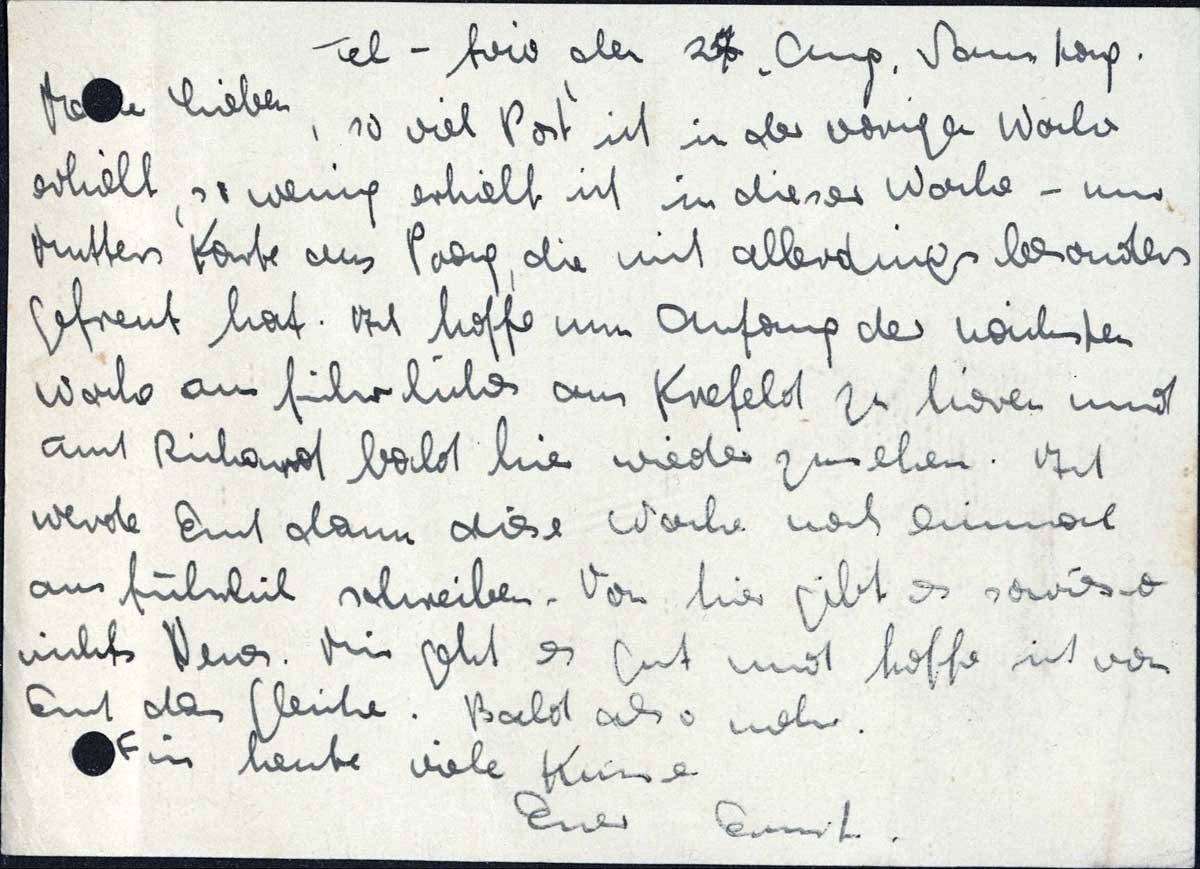 Tel-Aviv den 27. Aug. Samstag.
Meine Lieben, so viel Post ich in der vorigen Woche
erhielt, so wenig erhielt ich in dieser Woche – nur
Mutters Karte aus Prag, die mich allerdings besonders
gefreut hat. Ich hoffe nun Anfang der nächsten
Woche ausführliches aus Krefeld zu hören und
auch Richard bald hier wieder zusehen. Ich
werde Euch dann diese Woche noch einmal
ausführlich schreiben. Von hier gibt es sowieso
nichts Neues. Mir geht es gut und hoffe ich von
Euch das Gleiche. Bald also mehr.
Für heute viele Küsse
Euer Ernst.